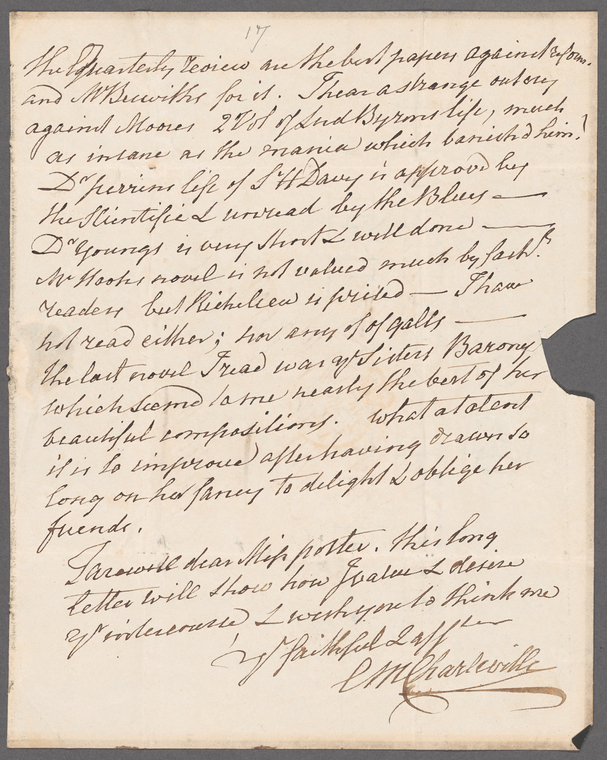 17
the Quarterly review are the best papers against reform.
and Mr Beckwiths for it. I hear a strange outcry
against Moores 2 Vol of Lord Byrons life, much
as insane as the mania which banish'd him!
Dr perrins life of Sr H Davy is approvd by
the Scientific & unread by the Blues —
Dr Youngs is very short & will done —
Mr Hooks novel is not valued much by fash.
readers but Richelieu is prised — I have
not read either; nor any of of galls —
the last novel I read was yr Sisters Barony
which seemd to me nearly the best of her
beautiful compositions. what a talent
it is to improve after having drawn so
long on her fancy to delight & oblige her
friends.
Farewell dear Miss porter. this long
letter will show how I value & desire
yr intercourse & wish you to think me
yr faithful & affte
CM Charleville